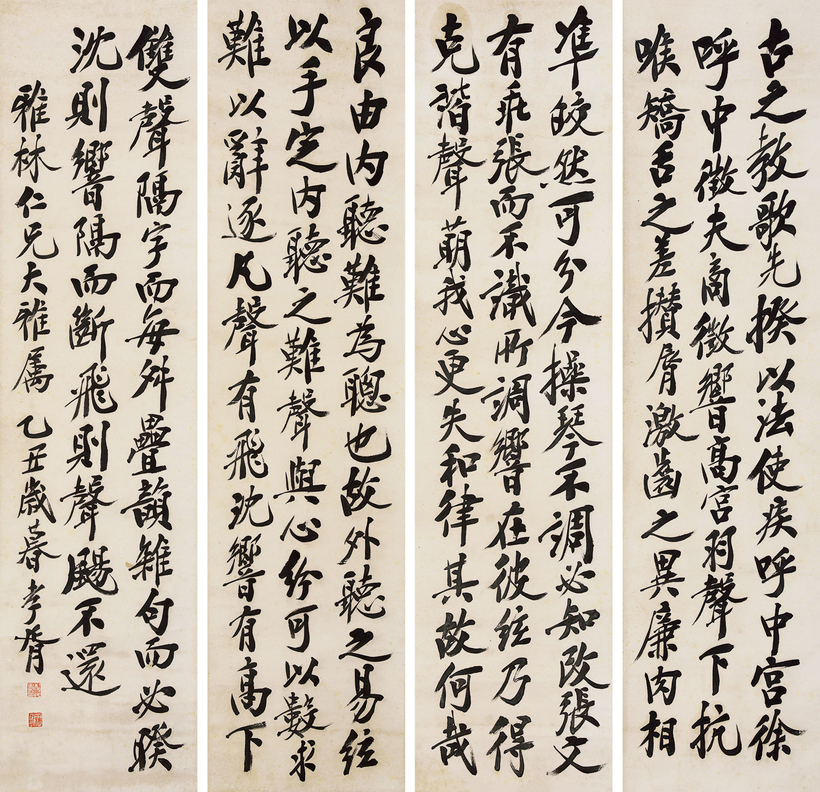 古之教歌先揆以法使疾呼中宫徐
呼中徵夫商徵響高宫羽聲下抗
喉矯舌之差攢脣激齒之異廉肉相
準皎然可分今操琴不調必知改張文
有乖張而不識所調響在彼絃乃得
克諧聲萌我心更失和律其故何哉
良由内聽難為聰也故外聽之易絃
以手定内聽之難聲與心紛可以數求
難以辭逐凡聲有飛沈響有高下
雙聲隔字而每舛疊韻雜句而必睽
沈則響隔而斷飛則聲颺不還
雅林仁兄大雅属 乙丑歲暮孝胥